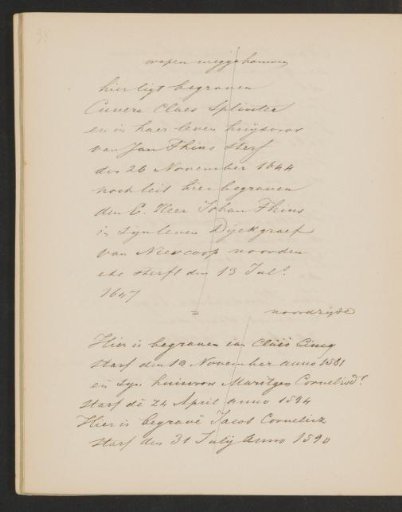 wapen weggehouwen
hier ligt begraven
Claes Splinter
en is haer leven huijsvrou
van Jan Thins sterf
den 26 November 1644
noch leit hier begraven
den E. Heer Johan Thins
in syn leven Dyckgraef
van Niewcoop noorden
etc sterft den 13 Jul.
1647
=
noordzijde
Hier is begraven Jan Claes
starf den 19 November anno 1581
en syn huisvrou Maritgen Cornelisd.
starf dē 24 April anno 1594
Hier is begravē Jacob Cornelisz
starf den 31 July anno 1590